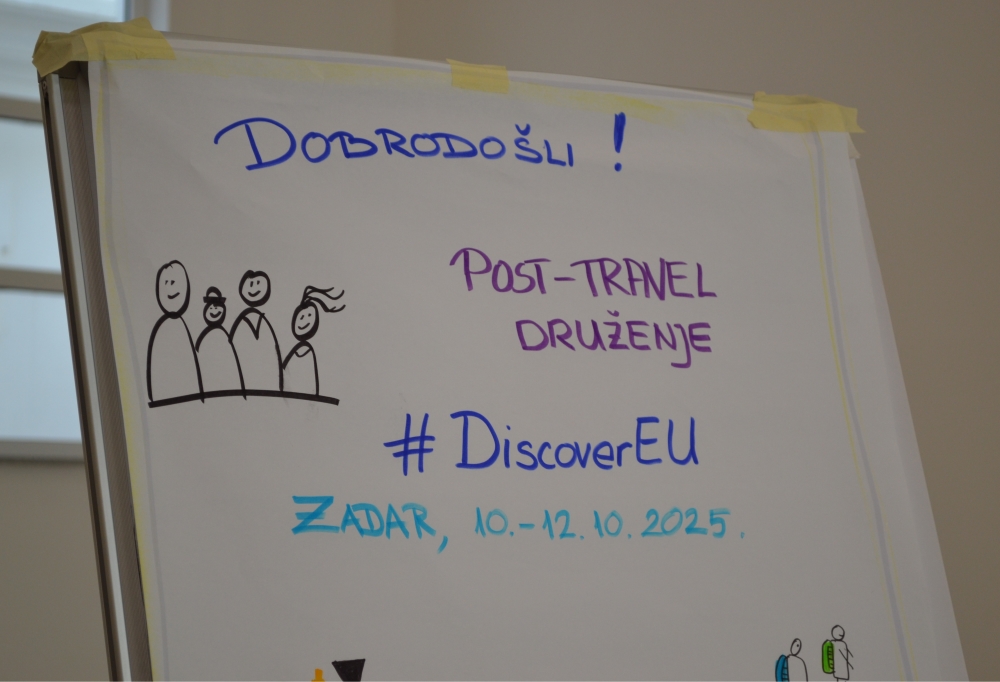 DOBRODOŠLI !
POST-TRAVEL
DRUŽENJE
#DiscoverEU
ZADAR, 10.-12.10.2025.